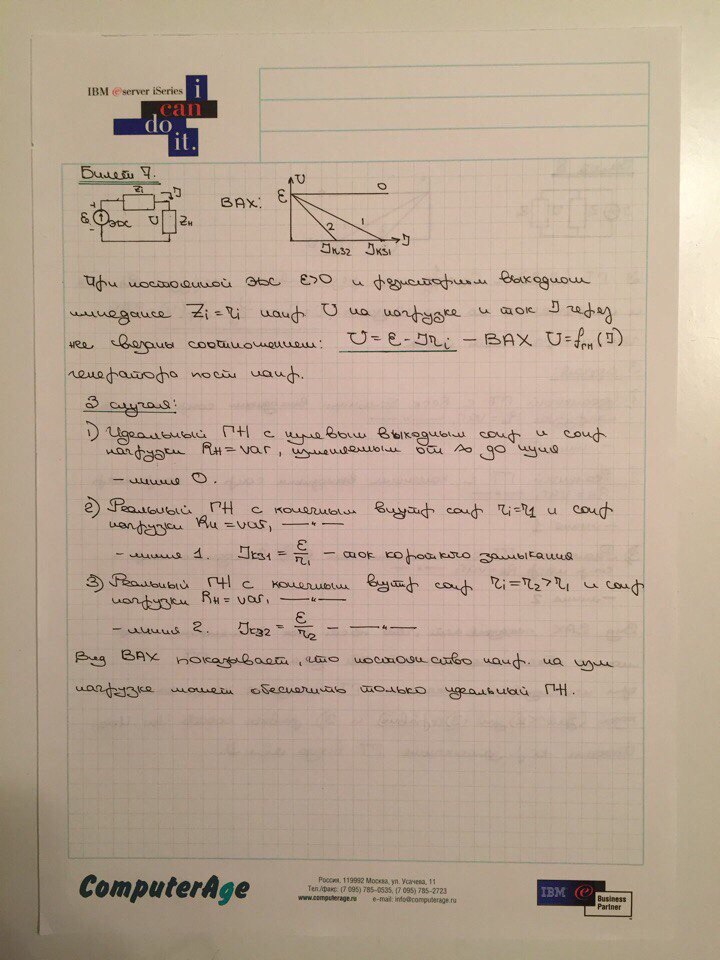 IBM @server iSeries
i
can
do
it.
Билет 7.
Zi J
ε ЭДС U Zн
+
-
ВАХ:
U
ε 0
2 1
Jкз2 Jкз1 J
При постоянной ЭДС ε>0 и резисторном выходном
импедансе Zi = ri напр U на нагрузке и ток J через
нее связаны соотношением: U = ε - Jri – ВАХ U = fгн(J)
генератора пост напр.
3 случая:
1) Идеальный ГН с нулевым выходным сопр и сопр
нагрузки Rн = var, изменяемым от ∞ до нуля
– линия 0.
2) Реальный ГН с конечным внутр сопр ri = r1 и сопр
нагрузки Rн = var, —"—
– линия 1. Jкз1 = ε/r1 – ток короткого замыкания
3) Реальный ГН с конечным внутр сопр ri = r2 > r1 и сопр
нагрузки Rн = var, —"—
– линия 2. Jкз2 = ε/r2 – —"—
Вид ВАХ показывает, что постоянство напр. на изм
нагрузке может обеспечить только идеальный ГН.
ComputerAge
Россия, 119992 Москва, ул. Усачева, 11
Тел./факс: (7 095) 785–0535, (7 095) 785–2723
www.computerage.ru e-mail: info@computerage.ru
IBM @ Business
Partner